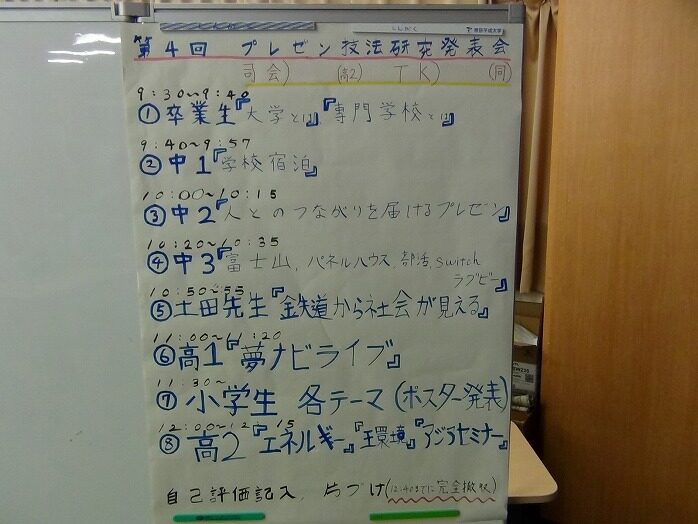 第4回 プレゼン技法研究発表会
司会) (高2 TK) (同)
9:30~9:40
①卒業生『大学とは』『専門学校とは』
9:40~9:57
②中1『学校宿泊』
10:00~10:15
③中2『人とのつながりを届けるプレゼン』
10:20~10:35
④中3『富士山、パネルハウス、部活、switch
ラグビー』
10:50~55
⑤土田先生『鉄道から社会が見える』
11:00~11:20
⑥高1『夢ナビライブ』
11:30~
⑦小学生 各テーマ(ポスター発表)
12:00~12:15
⑧高2『エネルギー』『環境』『アジラセミナー』
自己評価記入、片づけ(12:40までに完全撤収)